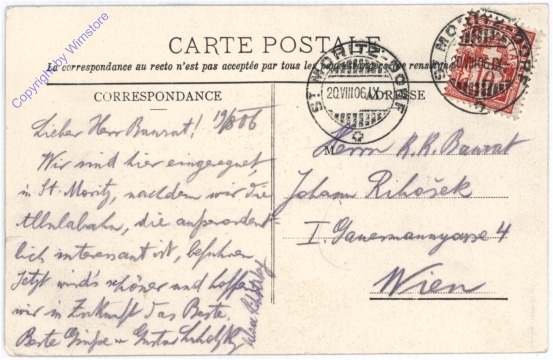 CARTE POSTALE
La correspondance au recto n'est pas acceptée par tous les pays étrangers. Se renseigner
CORRESPONDANCE
ADRESSE
ST. MORITZ-DORF
20.VIII.06.IX
ST. MORITZ-DORF
20.VIII.06.IX
10
Lieber Herr Baurat! 19/8 06
Wir sind hier eingeregnet,
in St. Moritz, nachdem wir die
Albulabahn, die außerordent-
lich interessant ist, befuhren
Jetzt wird's schöner und hoffen
wir in Zukunft das Beste.
Beste Grüße Gustav
M
Herrn K. K. Baurat
Johann Rihosek
I Gauermanngasse 4
Wien
Copyright by Wimstore